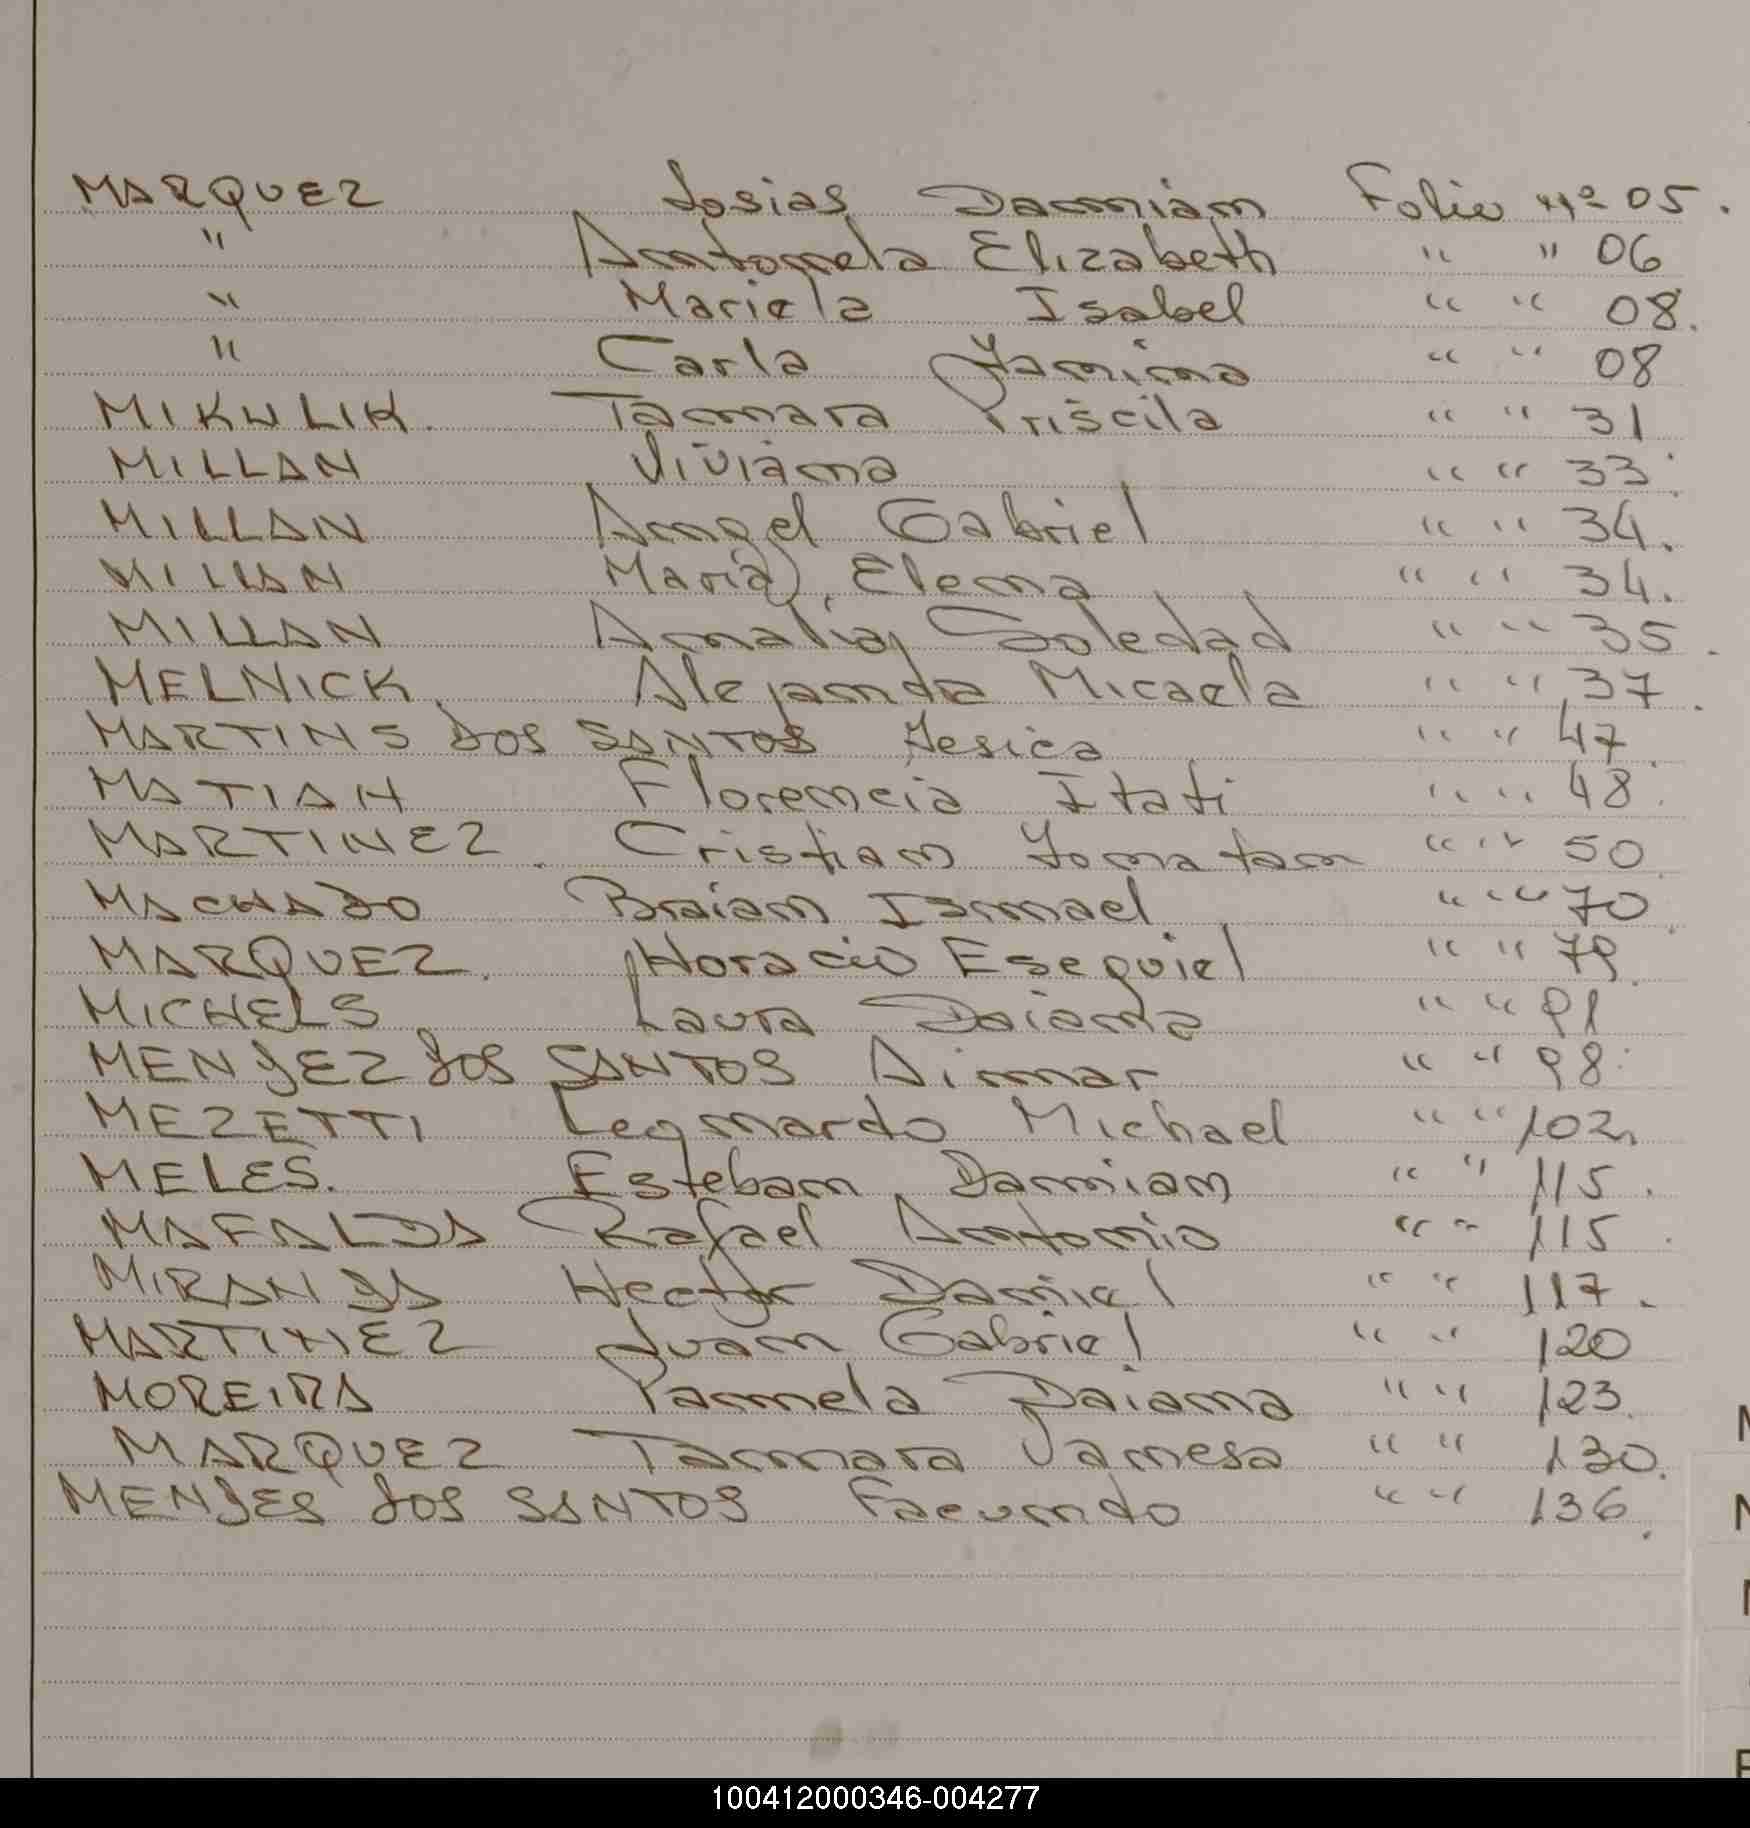 MARQUEZ Josias Damian Folio nº 05.
" Antonela Elizabeth " " 06
" Mariela Isabel " " 08.
" Carla Yamina " " 08
MIKULIK. Tamara Priscila " " 31
MILLAN Viviana " " 33.
MILLAN Angel Gabriel " " 34.
MILLAN Maria Elena " " 34.
MILLAN Amalia Soledad " " 35.
MELNICK. Alejandra Micaela " " 37.
MARTINS DOS SANTOS Yesica " " 47.
MATIAH Florencia Itati " " 48.
MARTINEZ. Cristian Yonatan " " 50.
MACHADO Braian Ismael " " 70.
MARQUEZ. Horacio Esequiel " " 79.
MICHELS Laura Daiana " " 91
MENDEZ DOS SANTOS Ainnar " " 98.
MEZETTI Leonardo Michael " " 102.
MELES. Esteban Damian " " 115.
MAFALDA Rafael Antonio " " 115.
MIRANDA Hector Daniel " " 117.
MARTINEZ Juan Gabriel " " 120
MOREIRA Pamela Daiana " " 123.
MARQUEZ Tamara Vanesa " " 130.
MENDES DOS SANTOS Facundo " " 136.
100412000346-004277